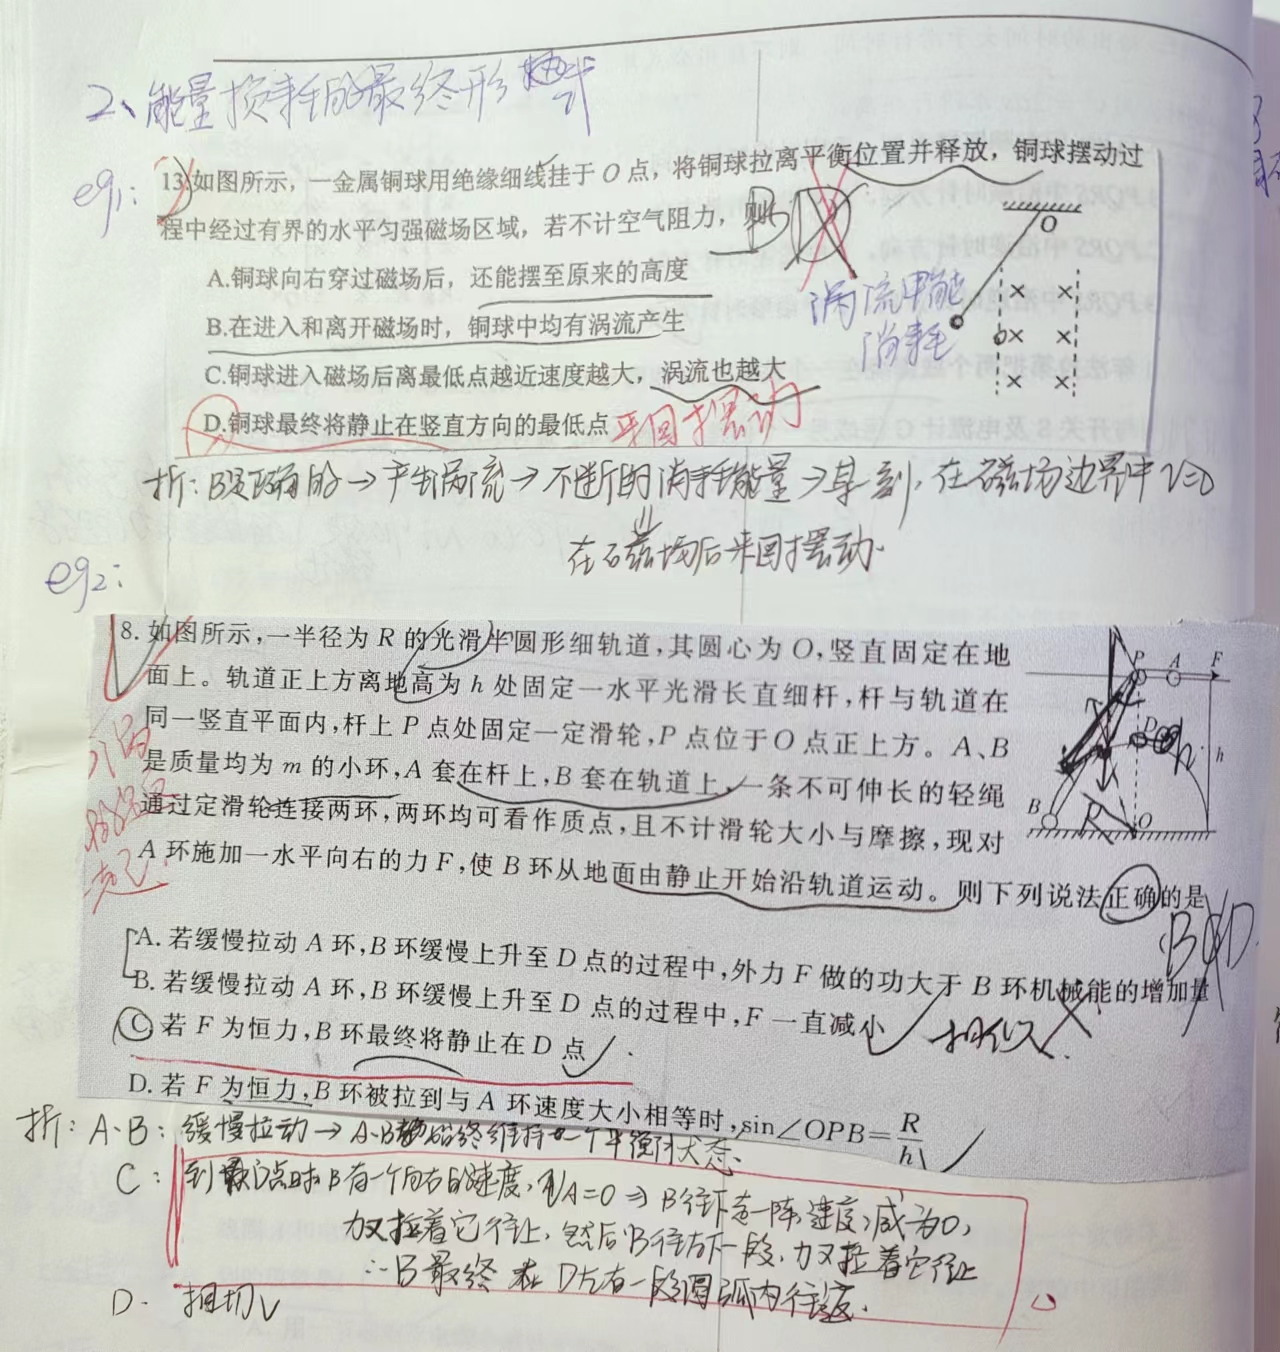 2、能量损耗的最终形式
eg1:
13.如图所示，一金属铜球用绝缘细线挂于O点，将铜球拉离平衡位置并释放，铜球摆动过
程中经过有界的水平匀强磁场区域，若不计空气阻力，则 B
A.铜球向右穿过磁场后，还能摆至原来的高度
B.在进入和离开磁场时，铜球中均有涡流产生
C.铜球进入磁场后离最低点越近速度越大，涡流也越大
D.铜球最终将静止在竖直方向的最低点 来回摆动
涡流电能
消耗
O
× ×
× ×
× ×
析：B是正确的→产生涡流→不断的消耗能量→某刻，在磁场边界中v=0
在磁场后来回摆动.
eg2:
8. 如图所示，一半径为 R 的光滑半圆形细轨道，其圆心为 O，竖直固定在地
面上。轨道正上方离地高为 h 处固定一水平光滑长直细杆，杆与轨道在
同一竖直平面内，杆上 P 点处固定一定滑轮，P 点位于 O 点正上方。A、B
是质量均为 m 的小环，A 套在杆上，B 套在轨道上，一条不可伸长的轻绳
通过定滑轮连接两环，两环均可看作质点，且不计滑轮大小与摩擦，现对
A 环施加一水平向右的力 F，使 B 环从地面由静止开始沿轨道运动。则下列说法正确的是
P A F
D
h
B R O
A. 若缓慢拉动 A 环，B 环缓慢上升至 D 点的过程中，外力 F 做的功大于 B 环机械能的增加量
B. 若缓慢拉动 A 环，B 环缓慢上升至 D 点的过程中，F 一直减小
C. 若 F 为恒力，B 环最终将静止在 D 点
D. 若 F 为恒力，B 环被拉到与 A 环速度大小相等时，sin∠OPB=R/h
析：A、B：缓慢拉动→A、B始终维持一个平衡状态.
C：到最D点时B有一个向右的速度，vA=0⇒B往下走一阵，速度减为0，
力又拉着它往上，然后B往左下一段，力又拉着它往上
∴B最终在D左右一段圆弧内往复.
D. 相切√